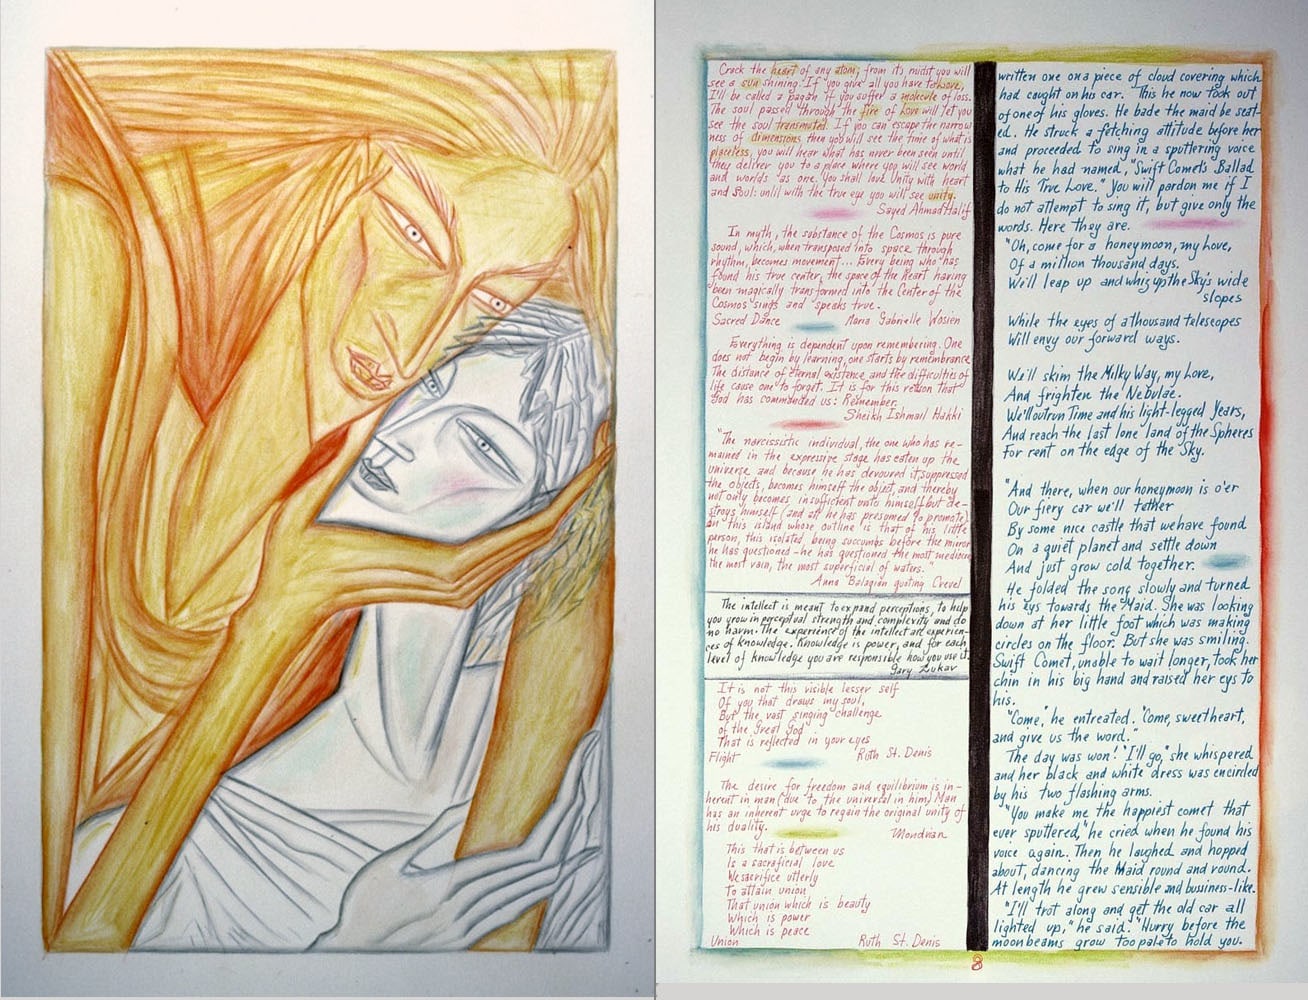 Crack the heart of any atom; from its midst you will
see a sun shining. If you give all you have to Love,
I'll be called a pagan if you suffer a molecule of loss.
The soul passed through the fire of Love will let you
see the soul transmuted. If you can escape the narrow
ness of dimensions then you will see the time of what is
placeless, you will hear what has never been seen until
they deliver you to a place where you will see world
and worlds as one. You shall love Unity with heart
and Soul: until with the true eye you will see unity.
Sayed Ahmad Halif
In myth, the substance of the Cosmos is pure
sound, which, when transposed into space through
rhythm, becomes movement... Every being who has
found his true center, the space of the Heart having
been magically transformed into the Center of the
Cosmos sings and speaks true.
Sacred Dance Maria Gabrielle Wosien
Everything is dependent upon remembering. One
does not begin by learning, one starts by remembrance
The distance of eternal existance and the difficulties of
life cause one to forget. It is for this reason that
God has commanded us: Remember.
Sheikh Ishmail Hakki
"The narcissistic individual, the one who has re-
mained in the expressive stage has eaten up the
universe and because he has devoured it, suppressed
the objects, becomes himself the object, and thereby
not only becomes insufficient unto himself but de-
stroys himself (and all he has presumed to promote)
on this island whose outline is that of his little
person, this isolated being succumbs before the mirror
he has questioned - he has questioned the most mediocre
the most vain, the most superficial of waters."
Anna Balagian quoting Crevel
The intellect is meant to expand perceptions, to help
you grow in perceptual strength and complexity and do
no harm. The experience of the intellect are experien-
ces of knowledge. Knowledge is power, and for each
level of knowledge you are responsible how you use it.
Gary Zukav
It is not this visible lesser self
Of you that draws my soul,
But the vast singing challenge
of the Great God
That is reflected in your eyes
Flight Ruth St. Denis
The desire for freedom and equilibrium is in-
herent in man (due to the universal in him) Man
has an inherent urge to regain the original unity of
his duality.
Mondrian
This that is between us
Is a sacraficial love
We sacrifice utterly
To attain union
That union which is beauty
Which is power
Which is peace
Union Ruth St. Denis
written one on a piece of cloud covering which
had caught on his car. This he now took out
of one of his gloves. He bade the maid be seat-
ed. He struck a fetching attitude before her
and proceeded to sing in a sputtering voice
what he had named, "Swift Comet's Ballad
to His True Love." You will pardon me if I
do not attempt to sing it, but give only the
words. Here they are.
"Oh, come for a honeymoon, my Love,
Of a million thousand days.
We'll leap up and whiz up the Sky's wide
slopes
While the eyes of a thousand telescopes
Will envy our forward ways.
We'll skim the Milky Way, my Love,
And frighten the Nebulae.
We'll outrun Time and his light-legged Years,
And reach the last lone land of the Spheres
For rent on the edge of the Sky.
"And there, when our honeymoon is o'er
Our fiery car we'll tether
By some nice castle that we have found
On a quiet planet and settle down
And just grow cold together.
He folded the song slowly and turned
his eys towards the Maid. She was looking
down at her little foot which was making
circles on the floor. But she was smiling.
Swift Comet, unable to wait longer, took her
chin in his big hand and raised her eys to
his.
"Come," he entreated. "Come, sweetheart,
and give us the word."
The day was won! "I'll go," she whispered
and her black and white dress was encircled
by his two flashing arms.
"You make me the happiest comet that
ever sputtered," he cried when he found his
voice again. Then he laughed and hopped
about, dancing the Maid round and round.
At length he grew sensible and business-like.
"I'll trot along and get the old car all
lighted up," he said. "Hurry before the
moonbeams grow too pale to hold you.
8